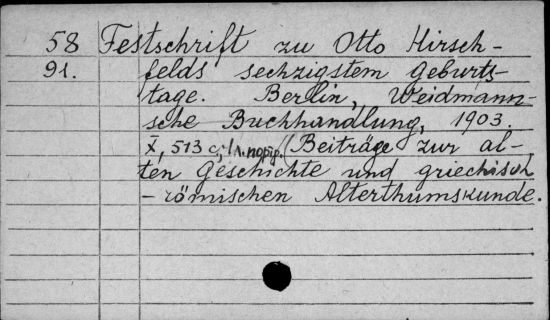 58 Festschrift zu Otto Hirsch-
91. felds sechzigstem Geburts-
tage. Berlin, Weidmann-
sche Buchhandlung, 1903.
X, 513 c., (Beiträge zur al-
ten Geschichte und griechisch
-römischen Alterthumskunde.